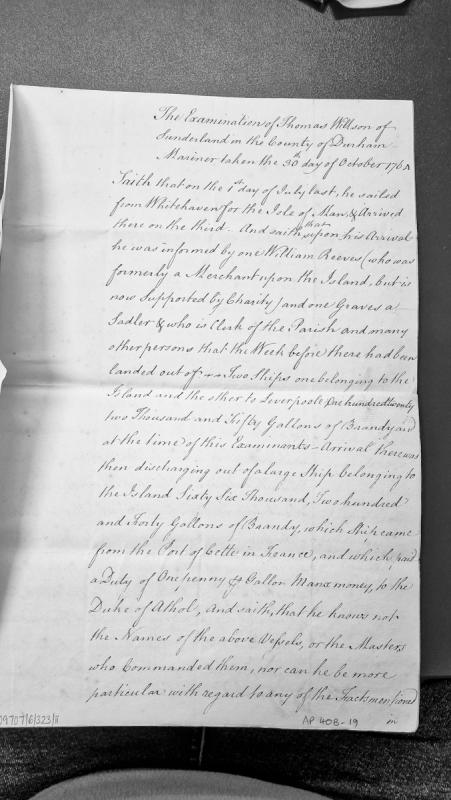 The Examination of Thomas Willson of
Sunderland in the County of Durham
Mariner taken the 30th day of October 176
Saith that on the 1st day of July last, he sailed
from Whitehaven for the Isle of Man, & Arrived
there on the third. And saith, that upon his Arrival
he was informed by one William Reeves (who was
formerly a Merchant upon the Island, but is
now Supported by Charity) and one Graves a
Sadler & who is Clerk of the Parish and many
other persons that the Week before there had been
landed out of Two Ships one belonging to the
Island and the other to Leverpoole One hundred twenty
two Thousand and Fifty Gallons of Brandy and
at the time of this Examinants Arrival there was
then discharging out of a large Ship belonging to
the Island Sixty Six Thousand, Two hundred
and Forty Gallons of Brandy, which Ship came
from the Port of Cette in France, and which paid
a Duty of One penny Gallon Manx money, to the
Duke of Athol, And saith, that he knows not
the Names of the above Vessels, or the Masters
who Commanded them, nor can he be more
particular with regard to any of the Facts mentioned
in
09707/6/323/11
AP 40B-19